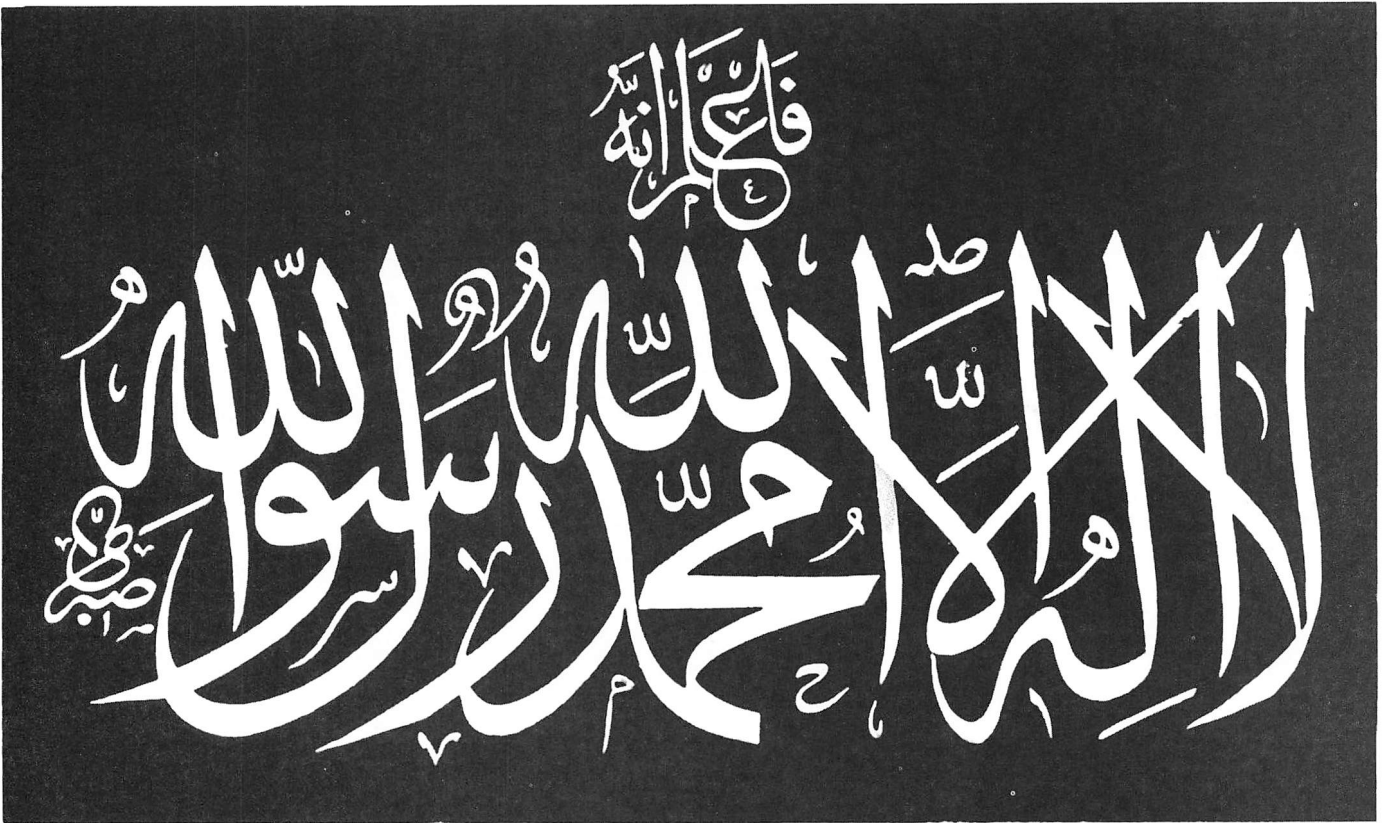 فَاعْلَمْ أَنَّهُ
لا اله الا الله محمد رسول الله
صبري